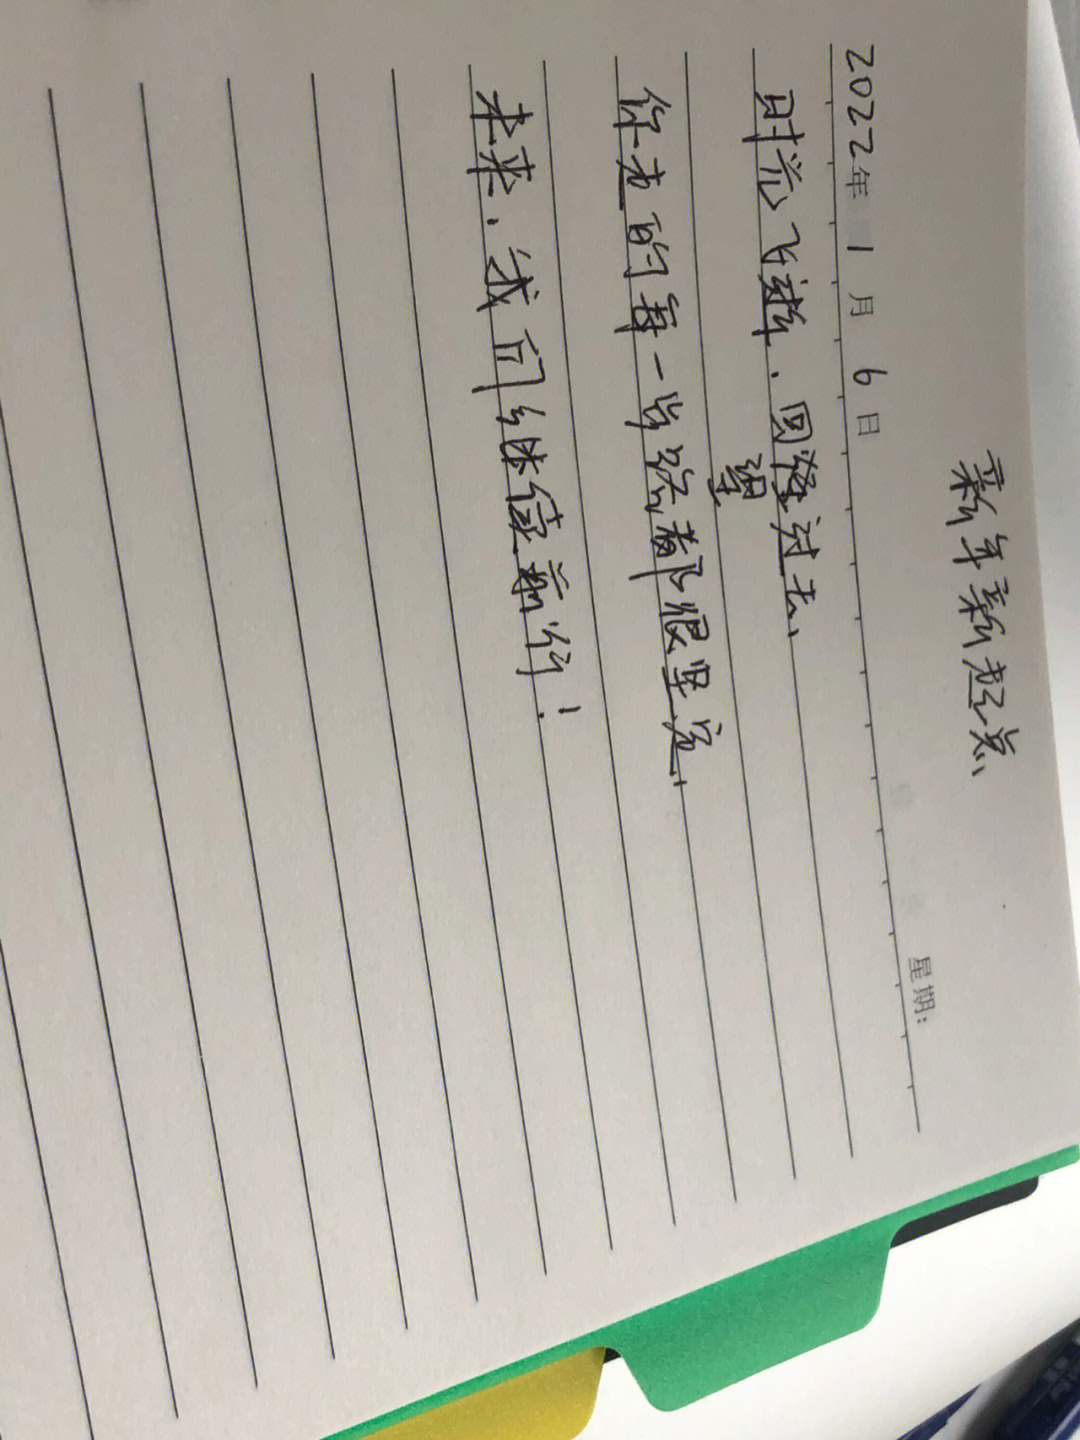 新年新起点
2022年 1月 6日 星期:
时光飞逝,回望过去、
你走的每一步路都很坚定、
未来,我们继续前行!